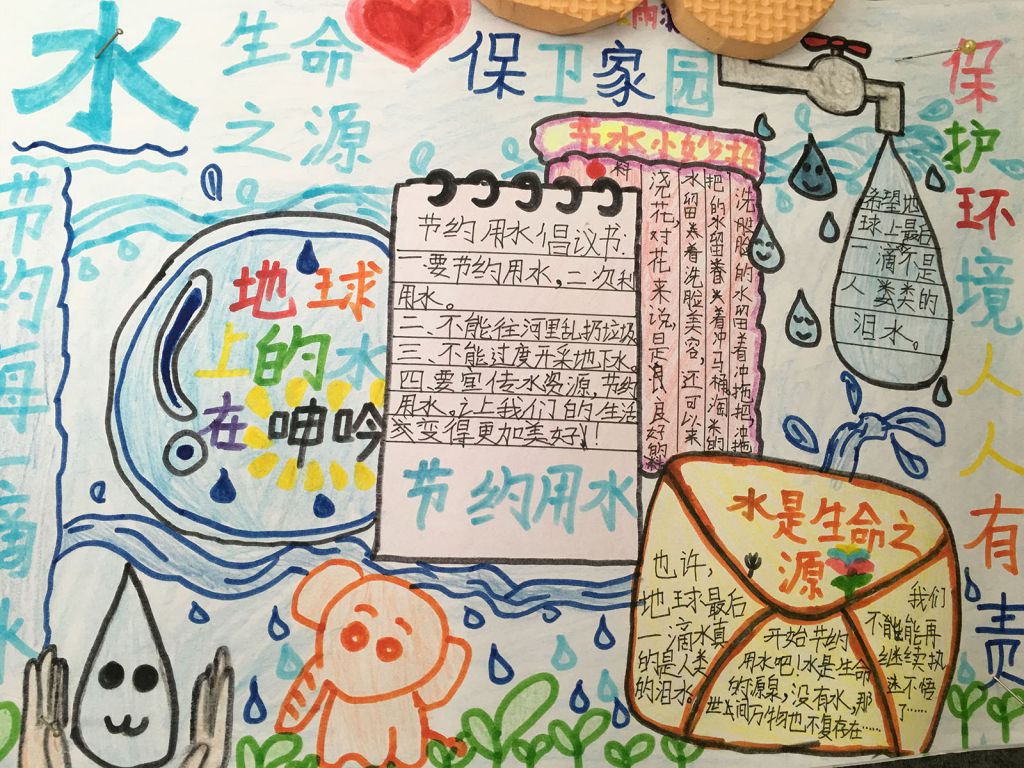 水
生命
之源
保卫家园
保护环境人人有责
节约每一滴水
节水小妙招
洗脸的水留着冲拖把,冲拖
把的水留着冲马桶,淘米的
水留着洗脸美容,还可以来
浇花,对花来说,是很好的料
料
希望地
球上最后
一滴不是
人类类的
泪水。
地球
上的水
在呻吟
节约用水倡议书:
一要节约用水,二次利
用水。
二、不能往河里乱扔垃圾
三、不能过度开采地下水。
四、要宣传水资源,节约
用水。让上我们的生活
变得更加美好!
节约用水
水是生命之
源
也许,
地球最后
一滴水真
的是人类
的泪水。
开始节约
用水吧!水是生命
的源泉,没有水,那
世上间万物也不复存在……
我们
不能能再
继续执
迷不悟
了……